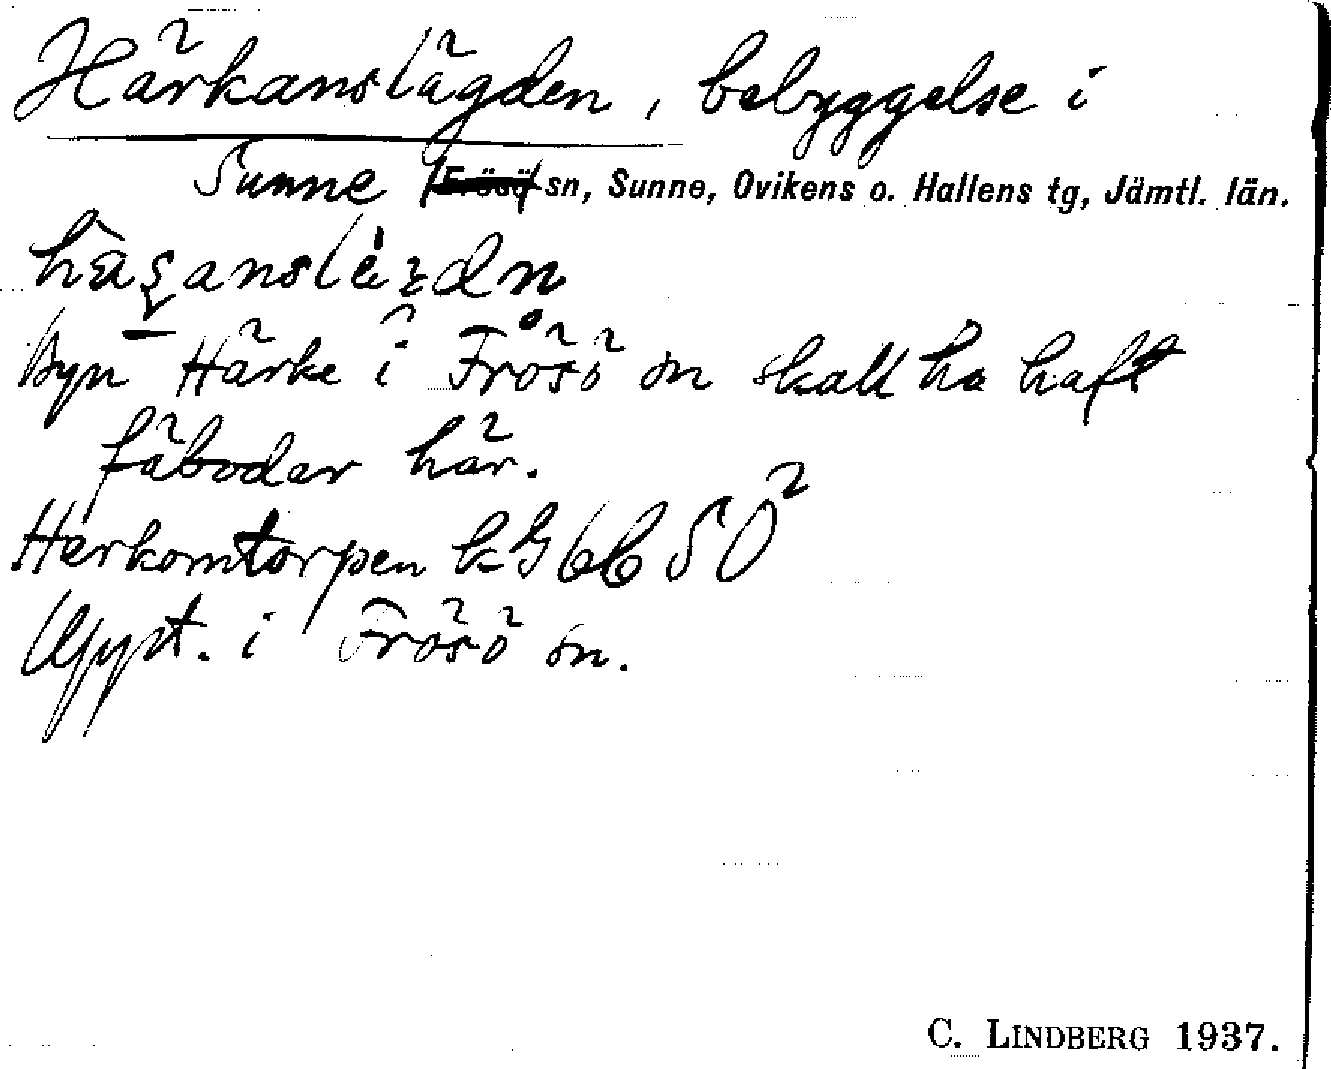 Härkanslägden, bebyggelse i
Sunne sn, Sunne, Ovikens o. Hallens tg, Jämtl. län.
Byn Härke i Frösö sn skall ha haft
fäbodar här.
Herkomtorpen kG 66 SO²
Uppt. i Frösö sn.
C. LINDBERG 1937.